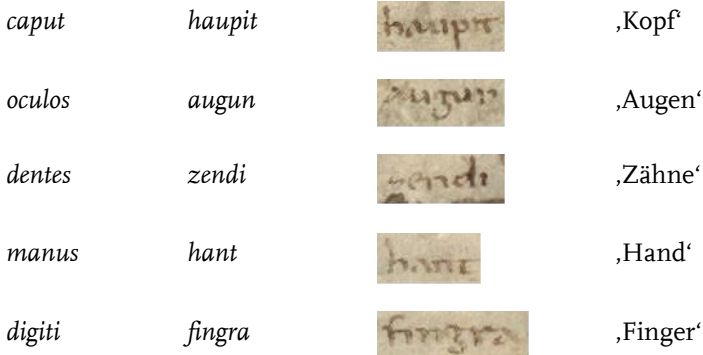 caput haupit haupit ‚Kopf‘
oculos augun augun ‚Augen‘
dentes zendi zendi ‚Zähne‘
manus hant hant ‚Hand‘
digiti fingra fingra ‚Finger‘